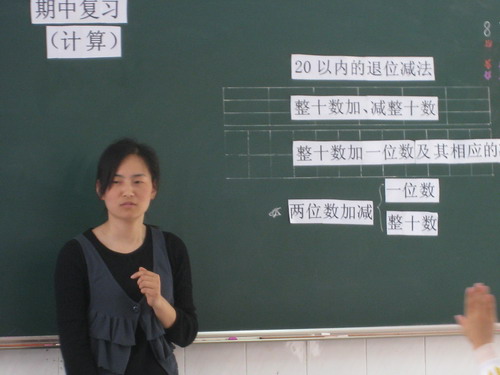 期中复习
（计算）
20以内的退位减法
整十数加、减整十数
整十数加一位数及其相应的
两位数加减
一位数
整十数